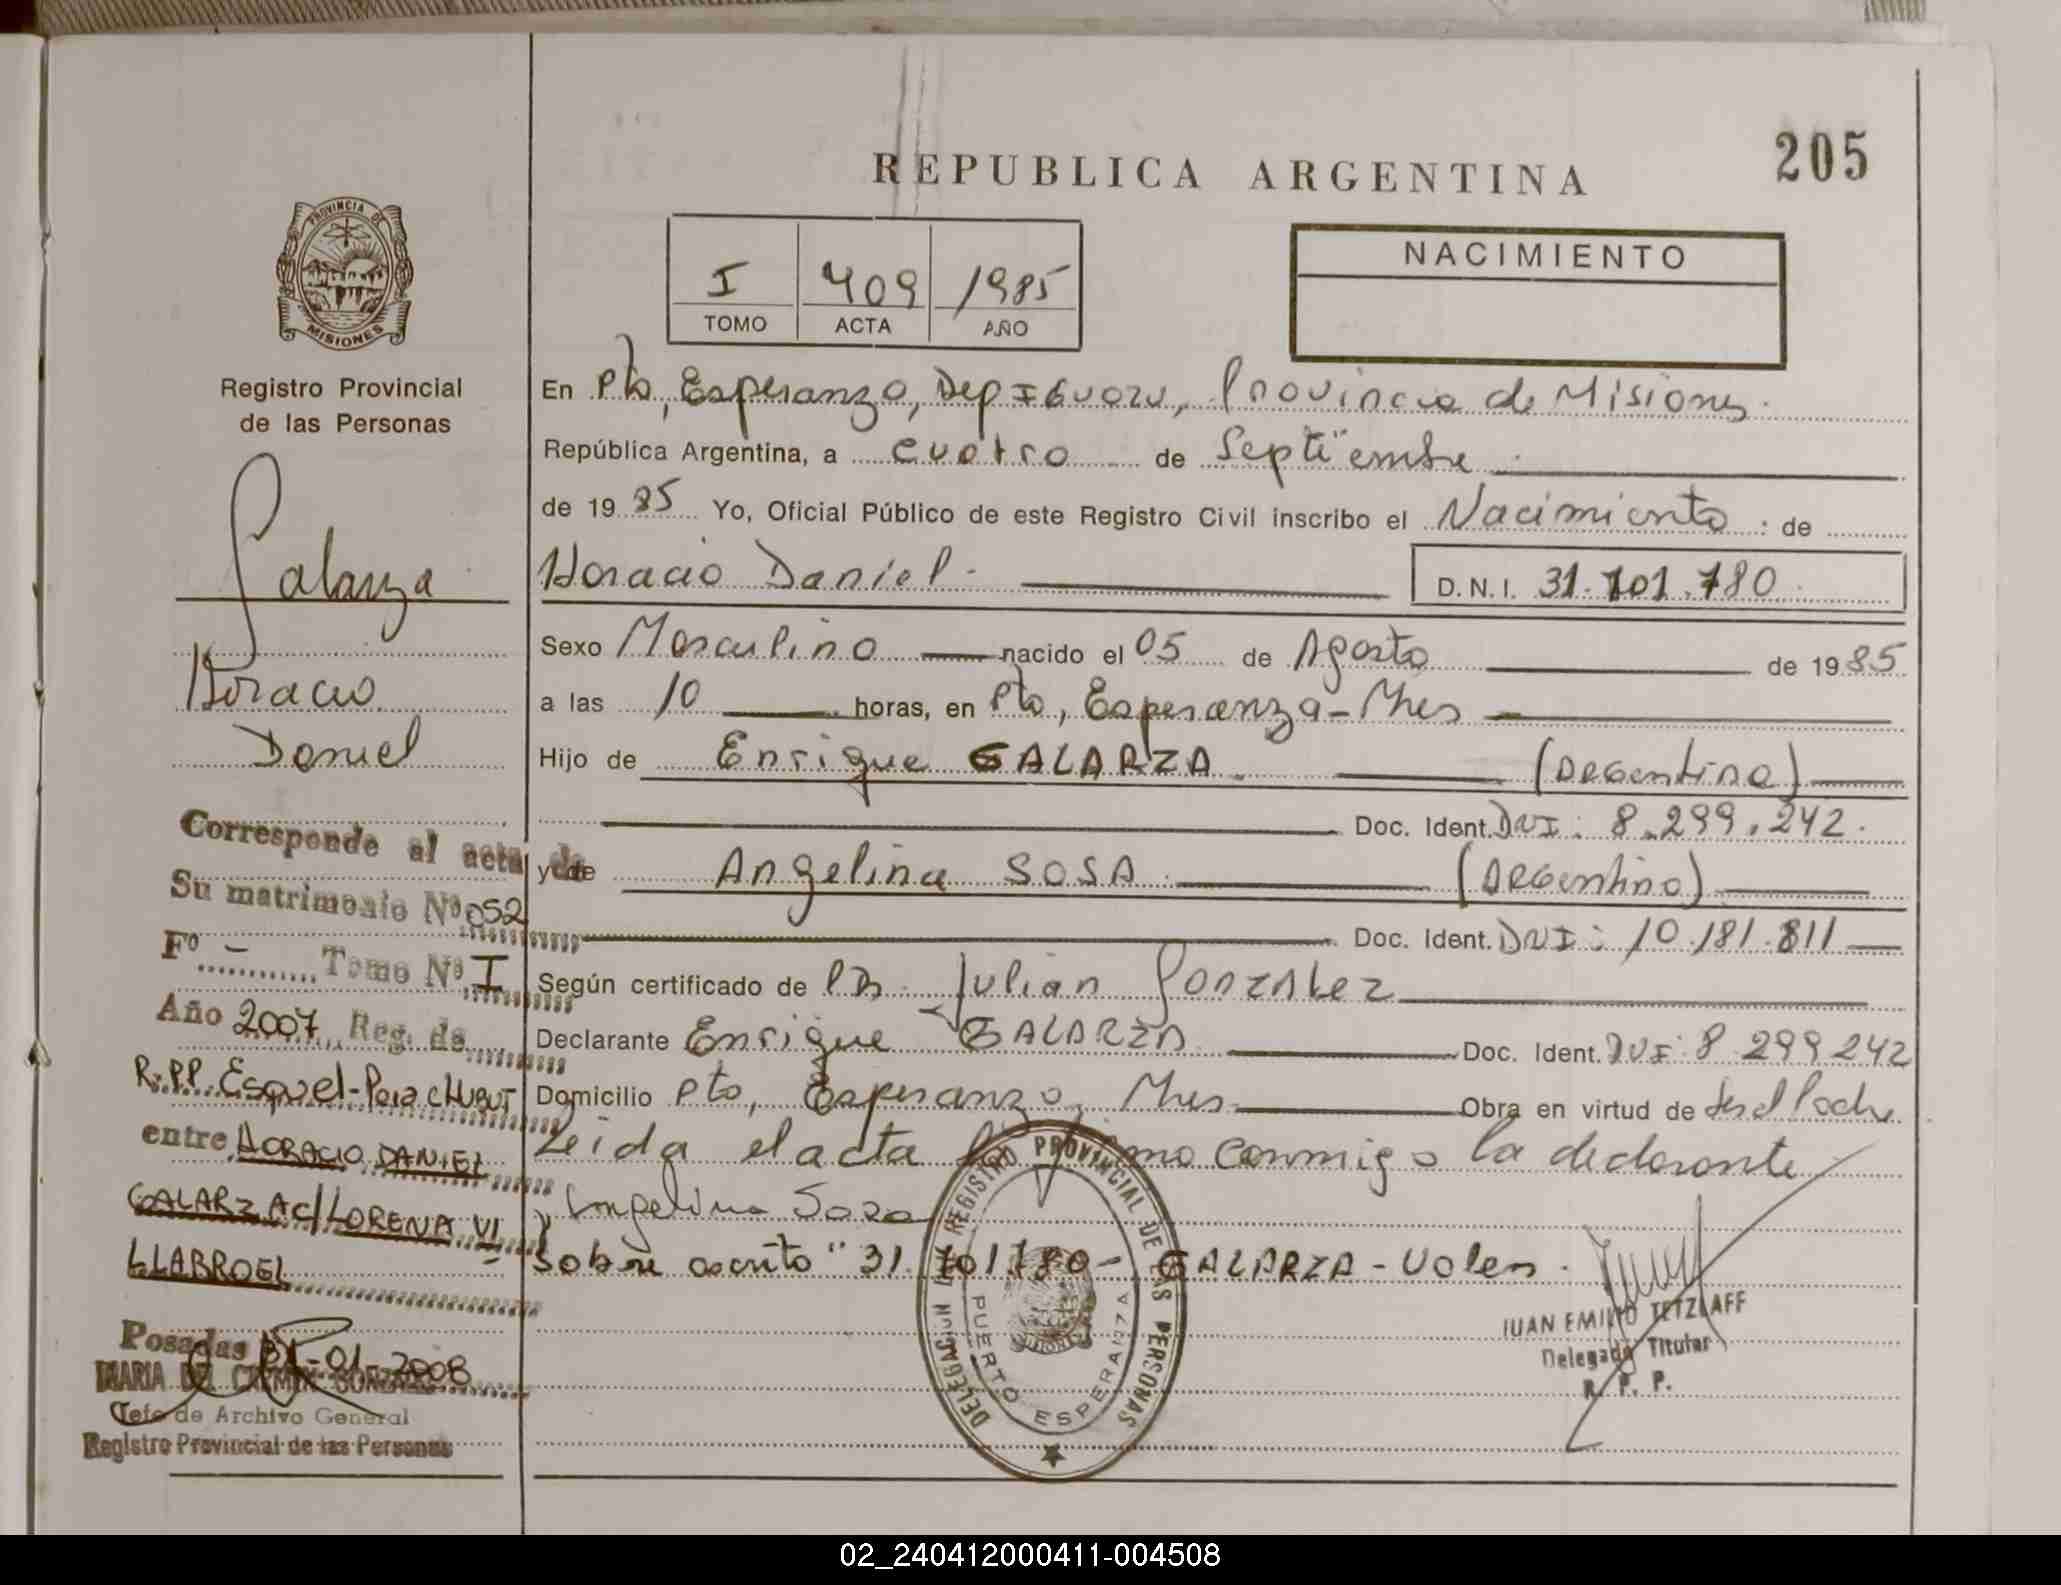 205
REPUBLICA ARGENTINA
PROVINCIA DE MISIONES
Registro Provincial
de las Personas
I 409 1985
TOMO ACTA AÑO
NACIMIENTO
En Pto, Esperanza, Dep IGuazu, Provincia de Misiones.
República Argentina, a cuatro de Septiembre
de 1985 Yo, Oficial Público de este Registro Civil inscribo el Nacimiento : de
Horacio Daniel - D.N.I. 31.101.780
Sexo Masculino nacido el 05 de Agosto de 1985
a las 10 horas, en Pto, Esperanza - Mnes
Hijo de Enrique GALARZA (Argentino)
Doc. Ident. DNI: 8.299.242.
y de Angelina SOSA (Argentina)
Doc. Ident. DNI: 10.181.811
Según certificado de Julián Gonzalez
Declarante Enrique GALARZA Doc. Ident. DNI: 8 299 242
Domicilio Pto, Esperanza, Mnes Obra en virtud de ser el Padre
Leida el acta la conmigo la declarante
Angelina Sosa
Sobre escrito "31.101780 - GALARZA - Valen.
Galarza
Horacio
Daniel
Corresponde al acta de
Su matrimonio Nº 052
Fº - Tomo Nº I
Año 2007 Reg. de
R.P.P. Esquel - Pcia CHUBUT
entre HORACIO DANIEL
GALARZA C/ LORENA VI
LLABROEL
Posadas 31-01-2008
MARIA DEL CARMEN
Jefe de Archivo General
Registro Provincial de las Personas
DELEGACION DEL REGISTRO PROVINCIAL DE LAS PERSONAS
PUERTO ESPERANZA
JUAN EMILIO TETZLAFF
Delegado Titular
R. P. P.
02_240412000411-004508